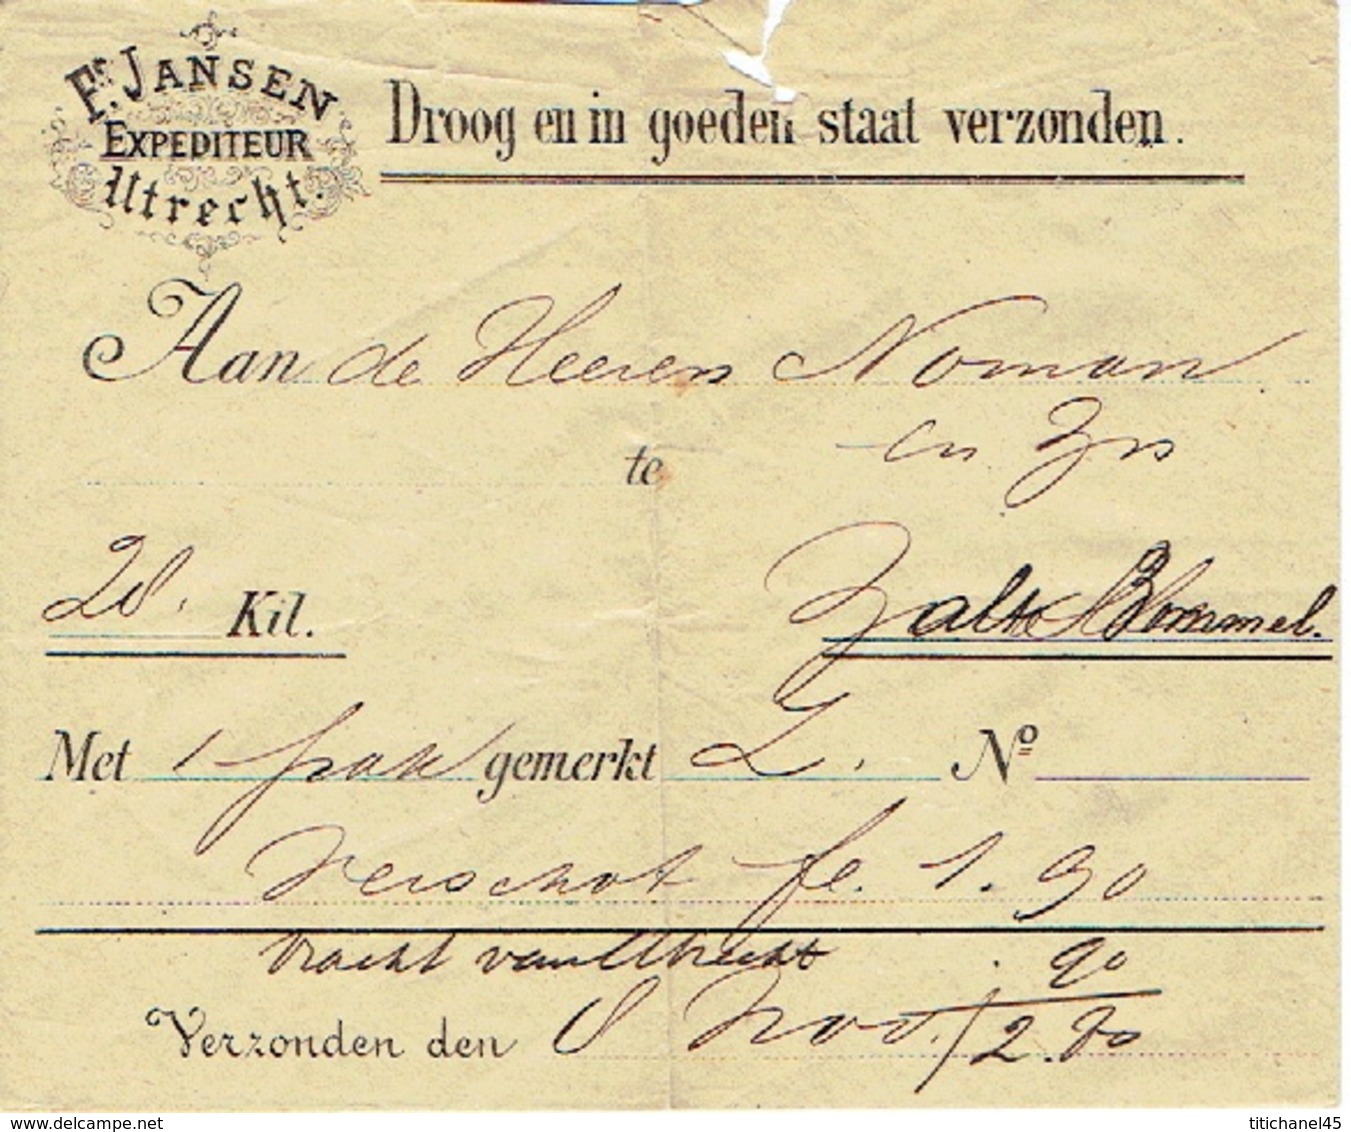 Fr. JANSEN
EXPEDITEUR
Utrecht.
Droog en in goeden staat verzonden.
Aan de Heeren Noman
en Zn
te
28. Kil. Zalt Bommel.
Met 1 pak gemerkt L. No
Verschot fl. 1.90
Vracht van Utrecht . 90
Verzonden den 8 Nov. / 2.80
delcampe.net
titichanel45